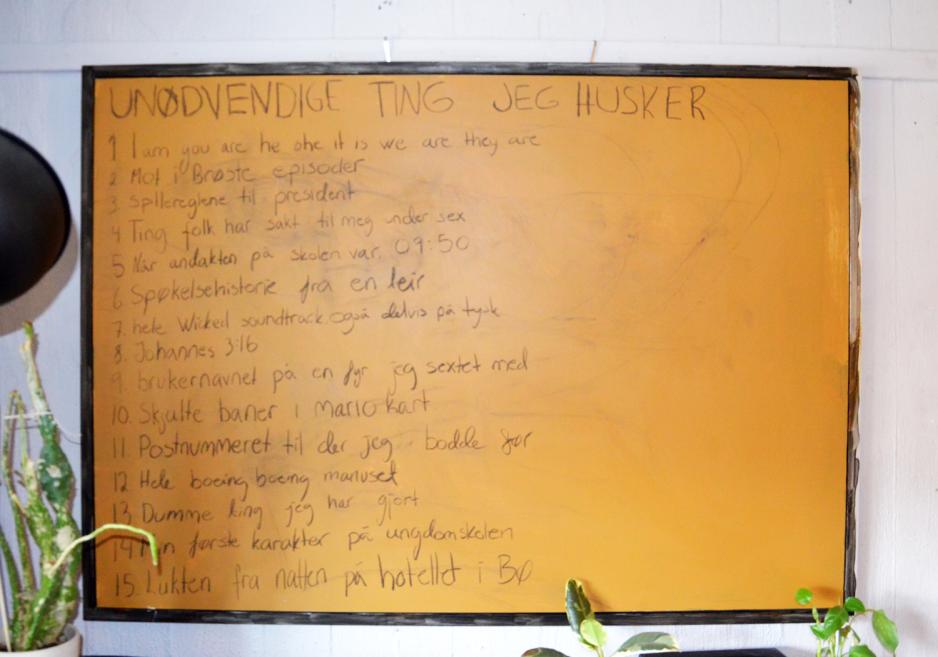 UNØDVENDIGE TING JEG HUSKER
1 I am you are he she it is we are they are
2 Mot i Brøste episoder
3 Spillereglene til president
4 Ting folk har sakt til meg under sex
5 Når andakten på skolen var. 09:50
6 Spøkelsehistorie fra en leir
7. hele Wicked soundtrack også delvis på tysk
8. Johannes 3:16
9. brukernavnet på en fyr jeg sextet med
10. Skjulte baner i mario kart
11. Postnummeret til der jeg bodde før
12 Hele boeing boeing manuset
13 Dumme ting jeg har gjort
14 Min første karakter på ungdomskolen
15. Lukten fra natten på hotellet i Bø